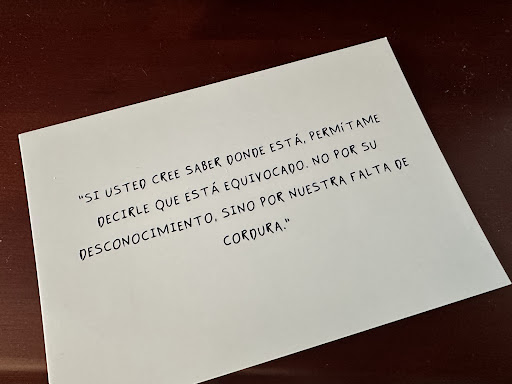 "SI USTED CREE SABER DONDE ESTÁ, PERMÍTAME
DECIRLE QUE ESTÁ EQUIVOCADO. NO POR SU
DESCONOCIMIENTO, SINO POR NUESTRA FALTA DE
CORDURA."